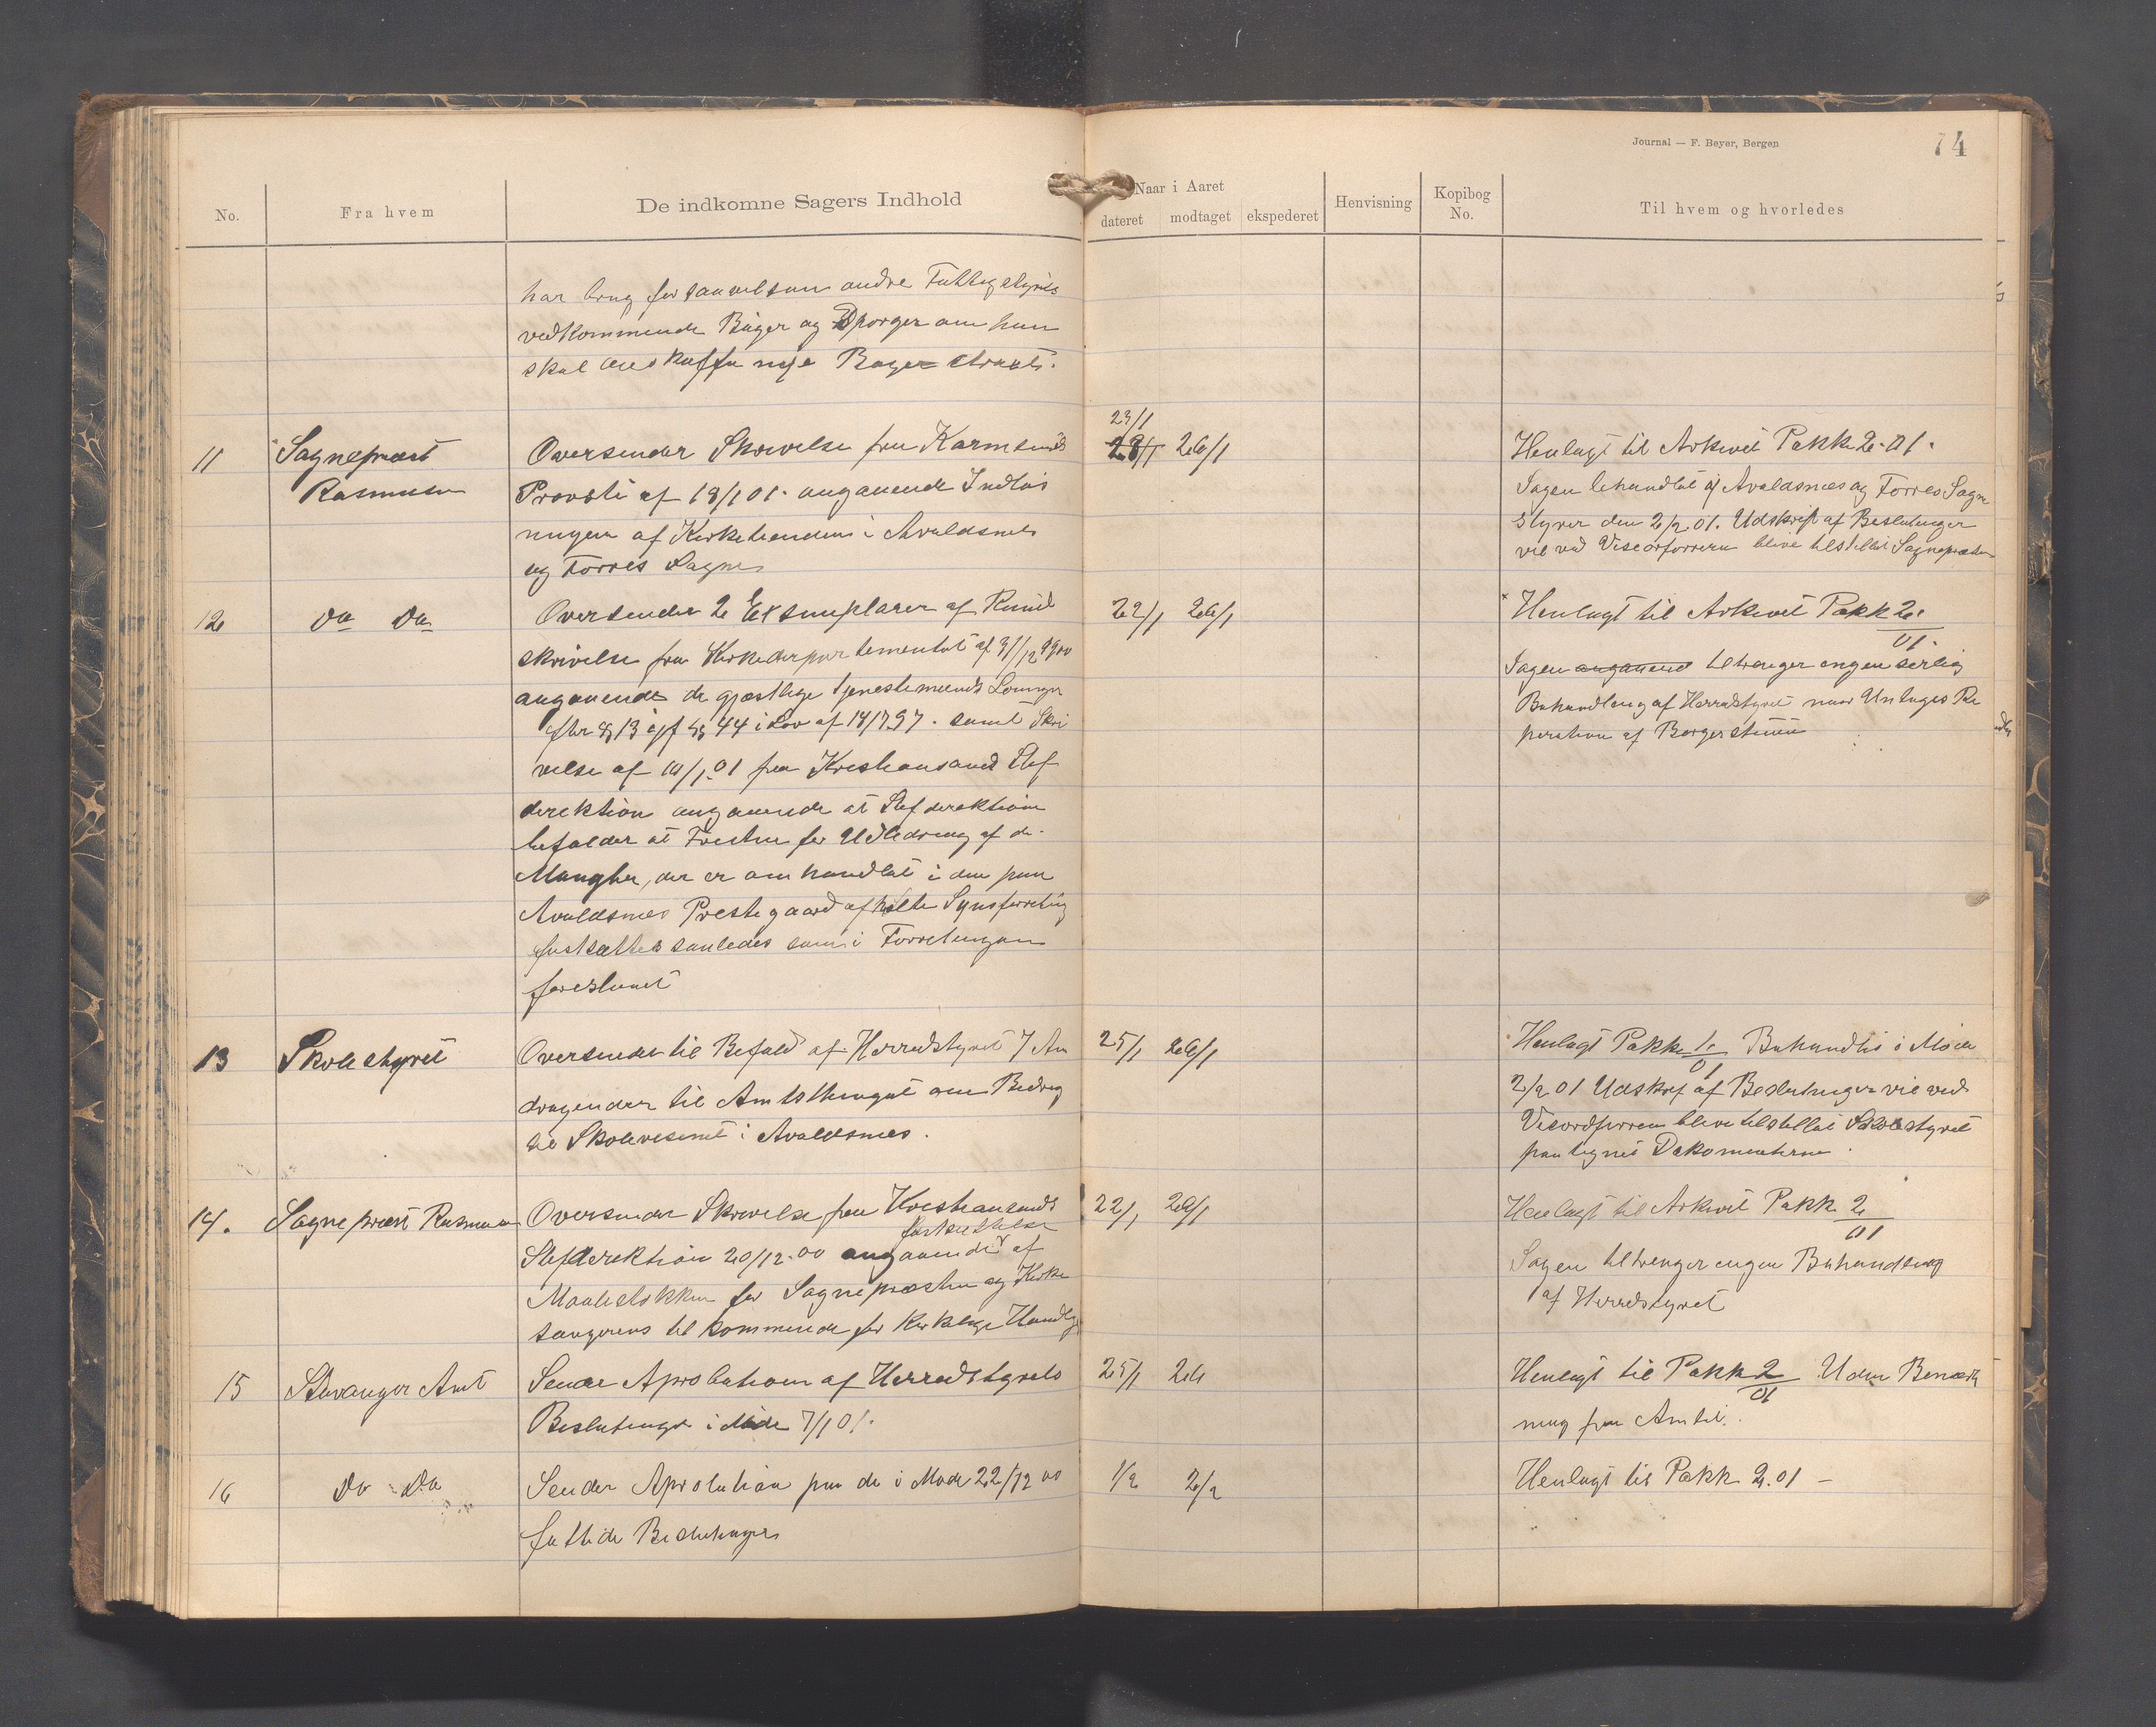 Journal — F. Beyer, Bergen
74
No.
Fra hvem
De indkomne Sagers Indhold
Naar i Aaret
dateret
modtaget
ekspederet
Henvisning
Kopibog
No.
Til hvem og hvorledes
har brug for saavel som andre Fattigstyrets
vedkommende Bøger og Spørger om han
skal anskaffe nye Bøger straks.
11
Sognepræst
Rasmussen
Oversender Skrivelse fra Karmsunds
Provsti af 18/1 01. angaaende Indløs
ningen af Kirketienden i Avaldsnes
og Torves Sogne
23/1
28/1 26/1
Henlagt til Arkivet Pakke 2-01.
Sagen behandlet af Avaldsnes og Torves Sogne
Styrer den 2/2 01. Udskrift af Beslutninger
vil ved Viseordføreren blive tilstillet Sognepræsten
12
Do Do
Oversender 2 Exsemplarer af Rund
skrivelse fra Kirkedepartementet af 31/12 1900
angaaende de gjestlige tjenestemænds
efter § 13 jf § 44 i Lov af 14/7 97. samt Skri
velse af 10/1 01 fra Kristiansand Stif
direktion angaaende at Stifdirektion
befaler at Fristen for Udbedring af de
Mangler, der er omhandlet i den paa
Avaldsnes Prestegaard afholte Synsforretning
fastsættes saaledes som i Forretningen
foreslaaet
22/1 26/1
Henlagt til Arkivet Pakk 2
01.
Sagen angaaend tiltrænger ingen særlig
Behandling af Herredstyret
13
Skolestyret
Oversender til Befald af Herredstyret 7 An
dragender til Amtsthinget om Bidrag
til Skolevesenet i Avaldsnes.
25/1 26/1
Henlagt Pakke 1
01
Behandles i Møde
2/2 01 Udskrf af Beslutninger vil ved
Viseordføreren blive tilstillet Skolestyret
paategnet Dokomenterne.
14.
Sognepræst Rasmussen
Oversender Skrivelse fra Kristiansands
Stifdirektion 20/12.00 angaaende Fastsættelse af
Maalestokken for Sognepræsten og Kirke
sangerens tilkommende for Kirkelige Handlg
22/1 26/1
Henlagt til Arkivet Pakk 2
01
Sagen tiltrenger ingen Behandling
af Herredstyret
15
Stavanger Amt
Sender Aprobation af Herredstyrets
Beslutninger i Møde 7/1 01.
25/1 26
Henlagt til Pakk 2
01
Uden Bemærk
ning fra Amtet.
16
Do Do
Sender Aprobation paa de i Møde 22/12 00
fattede Beslutninger
1/2 2/2
Henlagt til Pakk 2.01 —